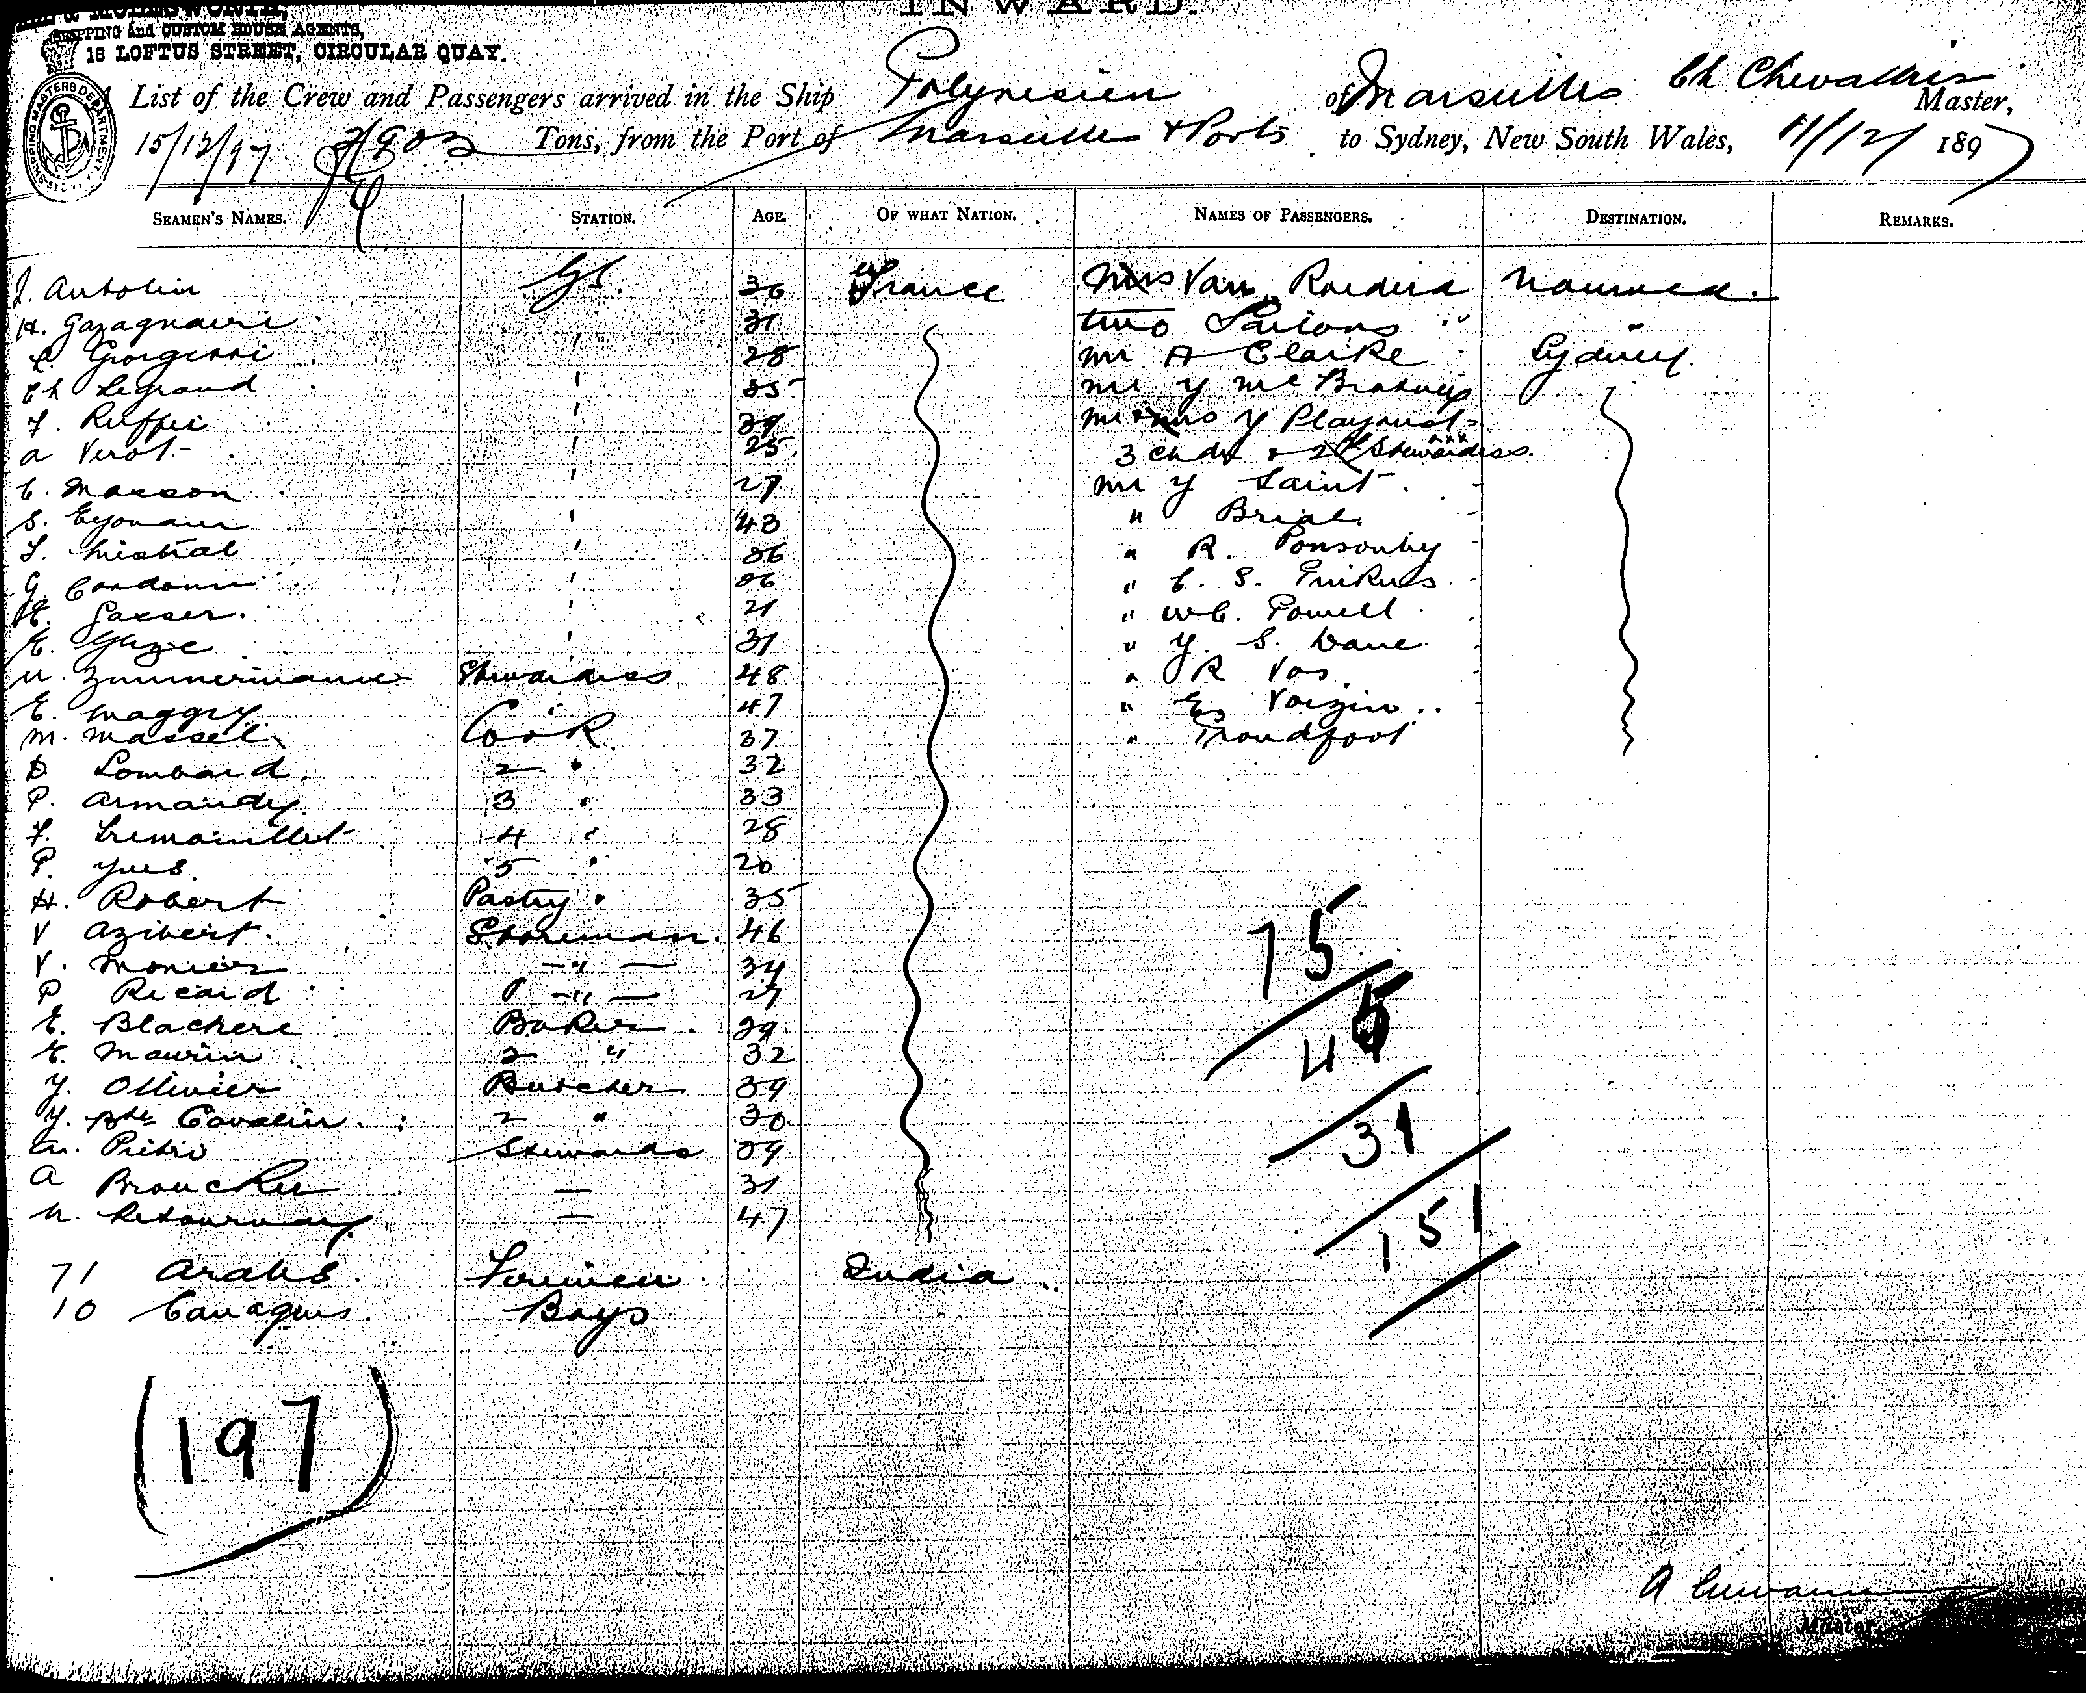 INWARD.
SHIPPING and CUSTOM HOUSE AGENTS,
16 LOFTUS STREET, CIRCULAR QUAY.
List of the Crew and Passengers arrived in the Ship Polynesien of Marseilles Ch Chevallier Master,
15/12/97 Tons, from the Port of Marseilles & Ports to Sydney, New South Wales, 11/12/ 1897
SEAMEN'S NAMES. STATION. AGE. OF WHAT NATION. NAMES OF PASSENGERS. DESTINATION. REMARKS.
J. Antolin 36 France Van Noumea.
H. Gazagnaire 31 two "
Giorgessi 28 Mr A Clarke Sydney
Ch Legrand 35 Mr Y Mc
F. Ruffei 39 Mr & Mrs Y Playoust
a Verot 25 3 chdn & 2
C. Masson 27 Mr Y Saint
S. 43 " Brial
L. Mistral 36 " R. Ponsonby
G. 36 " C. S.
Gasser. 21 " W C. Powell
E. 31 " Y. S. Dane
M. Zimmermann Stewardess 48 " R Vos
E. Maggry 47 " E. Voizin
M. Massel Cook 37 " Proudfoot
D Lombard 2 " 32
P. Armandy 3 " 33
F. Tremouillet 4 " 28
P. Yves. 5 " 20
H. Robert Pastry " 35
V Azibert. Storeman. 46
V. Monier — " — 34
P Ricard — " — 27
E. Blachere Baker 29
E. Maurin 2 " 32
Y. Ollivier Butcher 39
Y. Bte Cavalin 2 " 30
Pietri Stewards 39
A — 31
— 47
71 Arabs. Firemen India
10 Canaques Boys
75
45
31
151
(197)
Master.